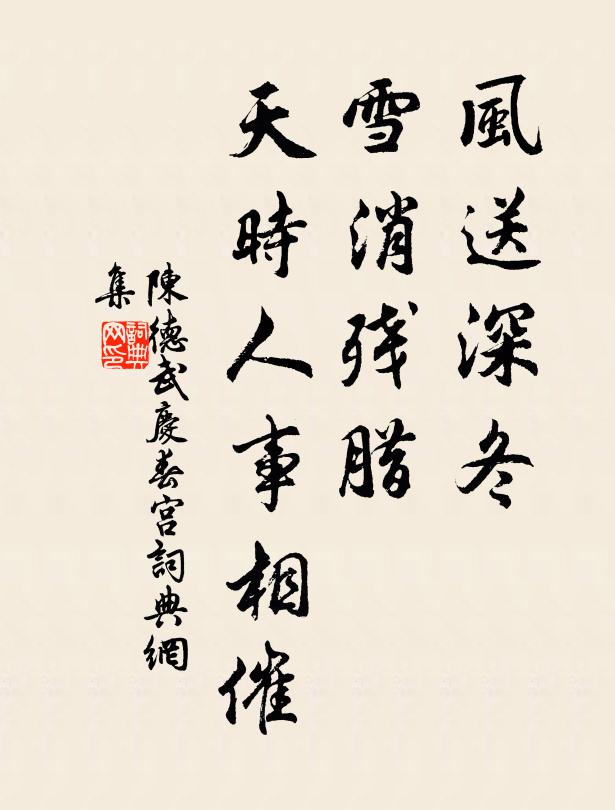 風送深冬
雪消残腊
天時人事相催
陳德武慶春宮詞典網
集
詞典
网印